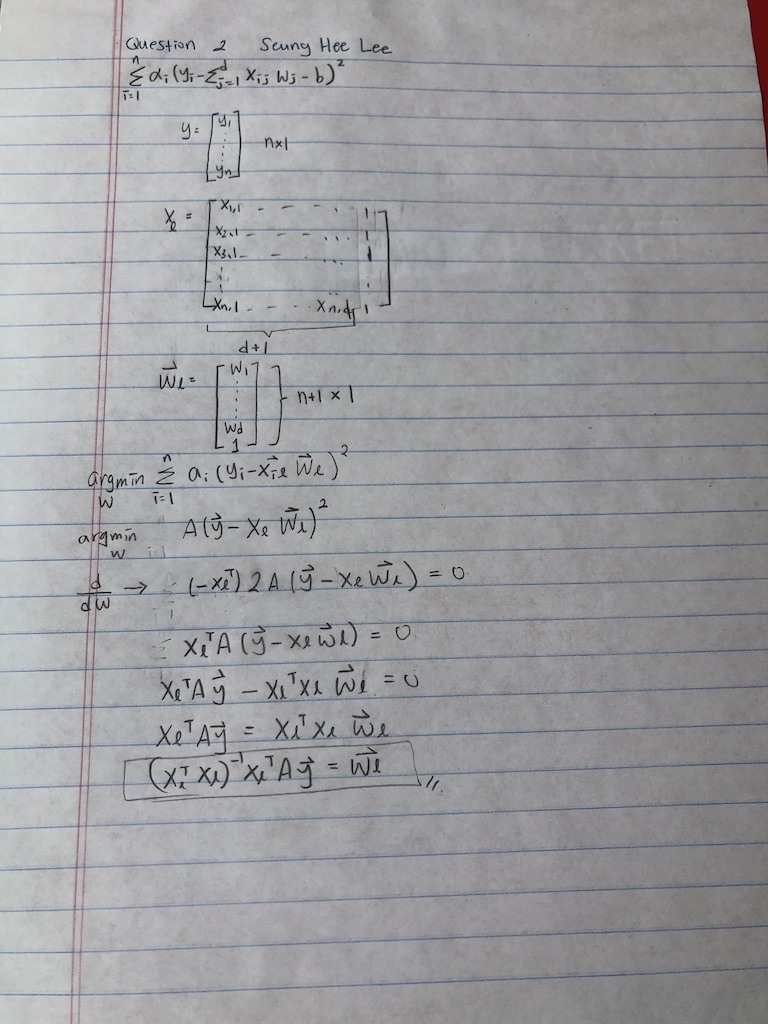 Question 2 Seung Hee Lee
n∑i=1 αi(yi-Σdj=1 xij wj - b)²
y= [y1 ⋮ yn] n×1
Xe = [x1,1 - - - . 1
x2,1 - - ... 1
x3,1 - - ... 1
⋮ ⋮
xn,1 - - - xn,d 1]
d+1
w⃗e= [w1 ⋮ wd 1] } n+1 × 1
argmin w n∑i=1 ai(yi-x⃗ie w⃗e)²
argmin w A(y⃗ - Xe w⃗e)²
d/dw → (-Xeᵀ) 2A (y⃗ - Xe w⃗e) = 0
XeᵀA (y⃗ - Xe w⃗e) = 0
XeᵀA y⃗ - XeᵀXe w⃗e = 0
XeᵀAy⃗ = XeᵀXe w⃗e
(XeᵀXe)⁻¹XeᵀAy⃗ = w⃗e //